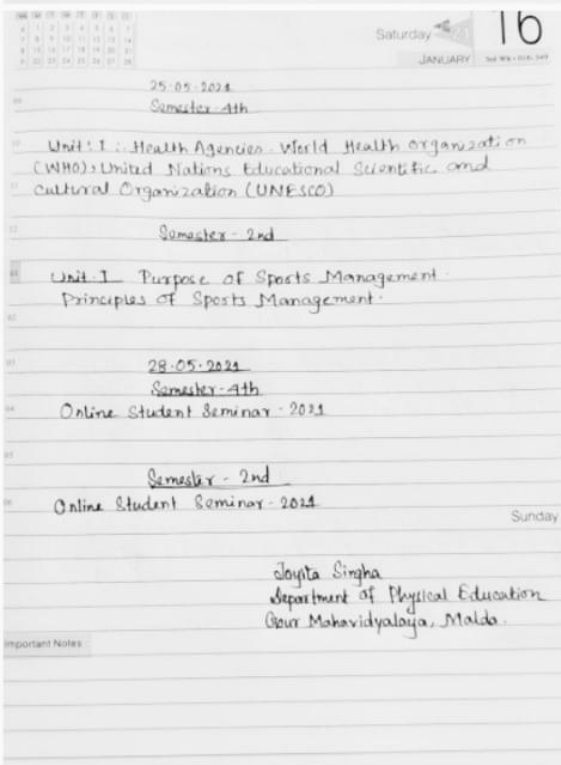 Saturday
16
JANUARY
25.05.2021
Semester-4th
Unit: I :. Health Agencies. World Health organization
(WHO), United Nations Educational Scientific and
cultural Organization (UNESCO)
Semester - 2nd
Unit. I Purpose of Sports Management.
Principles of Sports Management.
28.05.2021
Semester-4th
Online Student Seminar - 2021
Semester - 2nd
Online Student Seminar - 2021
Sunday
Joyita Singha
Department of Physical Education
Gour Mahavidyalaya, Malda.
Important Notes